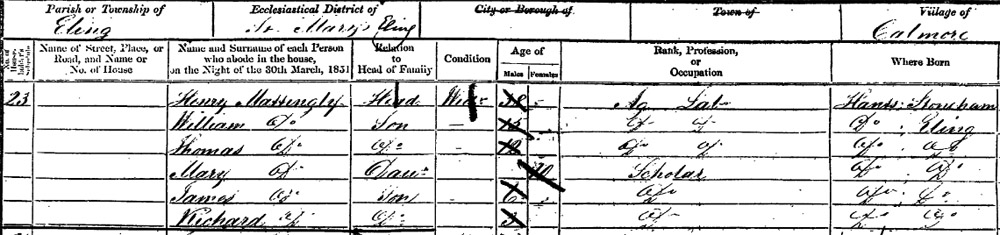 Parish or Township of Ecclesiastical District of City or Borough of Town of Village of
Eling St. Mary's Eling Calmore
Name of Street, Place, or Road, and Name or No. of House Name and Surname of each Person who abode in the house, on the Night of the 30th March, 1851 Relation to Head of Family Condition Age of Males Females Rank, Profession, or Occupation Where Born
23 Henry Massingly Head Ag Lab Hants
William Do Son Do Do Do Eling
Thomas Do Do Do Do Do Do
Mary Do Daur 10 Scholar Do Do
James Do Son Do Do Do
Richard Do Do Do Do Do